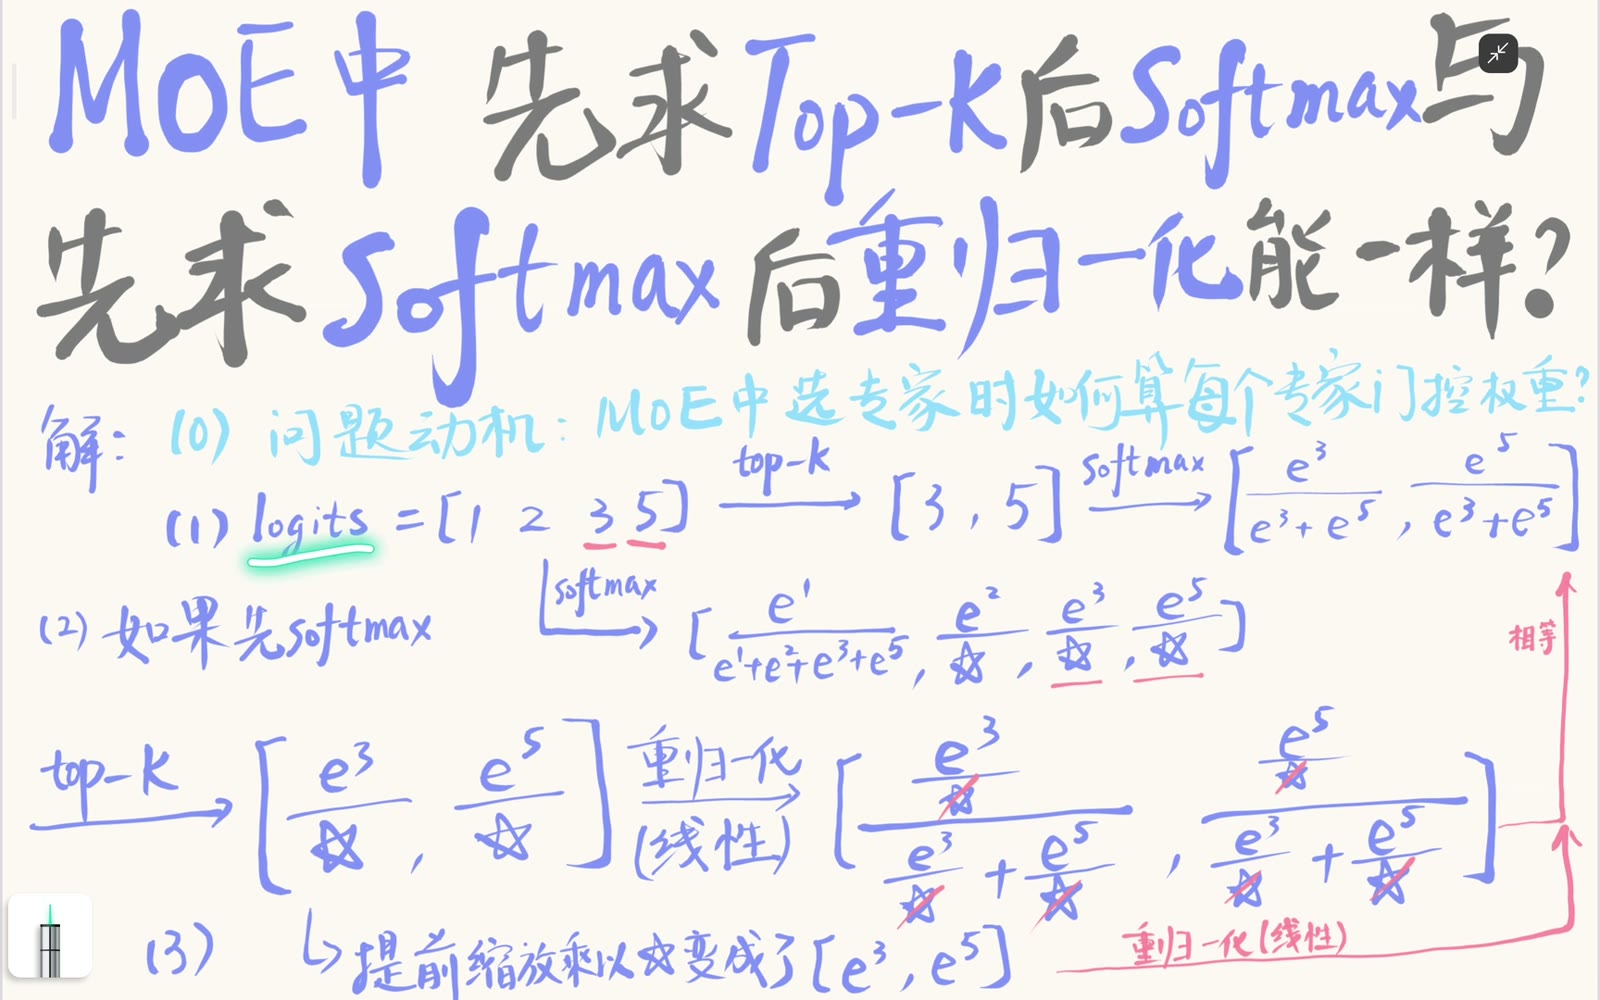 MOE中 先求Top-K后Softmax与
先求Softmax后重归一化能一样?
解: (0) 问题动机: MOE中选专家时如何算每个专家门控权重?
(1) logits = [1 2 3 5] top-k → [3, 5] softmax → [e³/(e³+e⁵), e⁵/(e³+e⁵)]
(2) 如果先softmax softmax → [e¹/(e¹+e²+e³+e⁵), e²/☆, e³/☆, e⁵/☆]
相等
top-K → [e³/☆, e⁵/☆] 重归一化 (线性) → [(e³/☆)/(e³/☆ + e⁵/☆), (e⁵/☆)/(e³/☆ + e⁵/☆)]
(3) ↳ 提前缩放乘以☆变成了[e³, e⁵] 重归一化(线性)